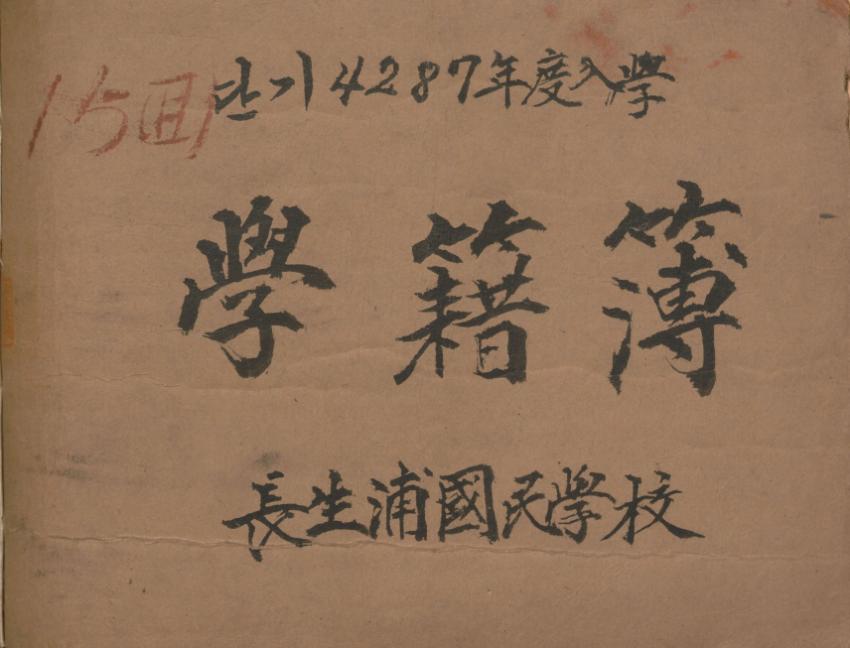 15回
단기4287年度入學
學籍簿
長生浦國民學校